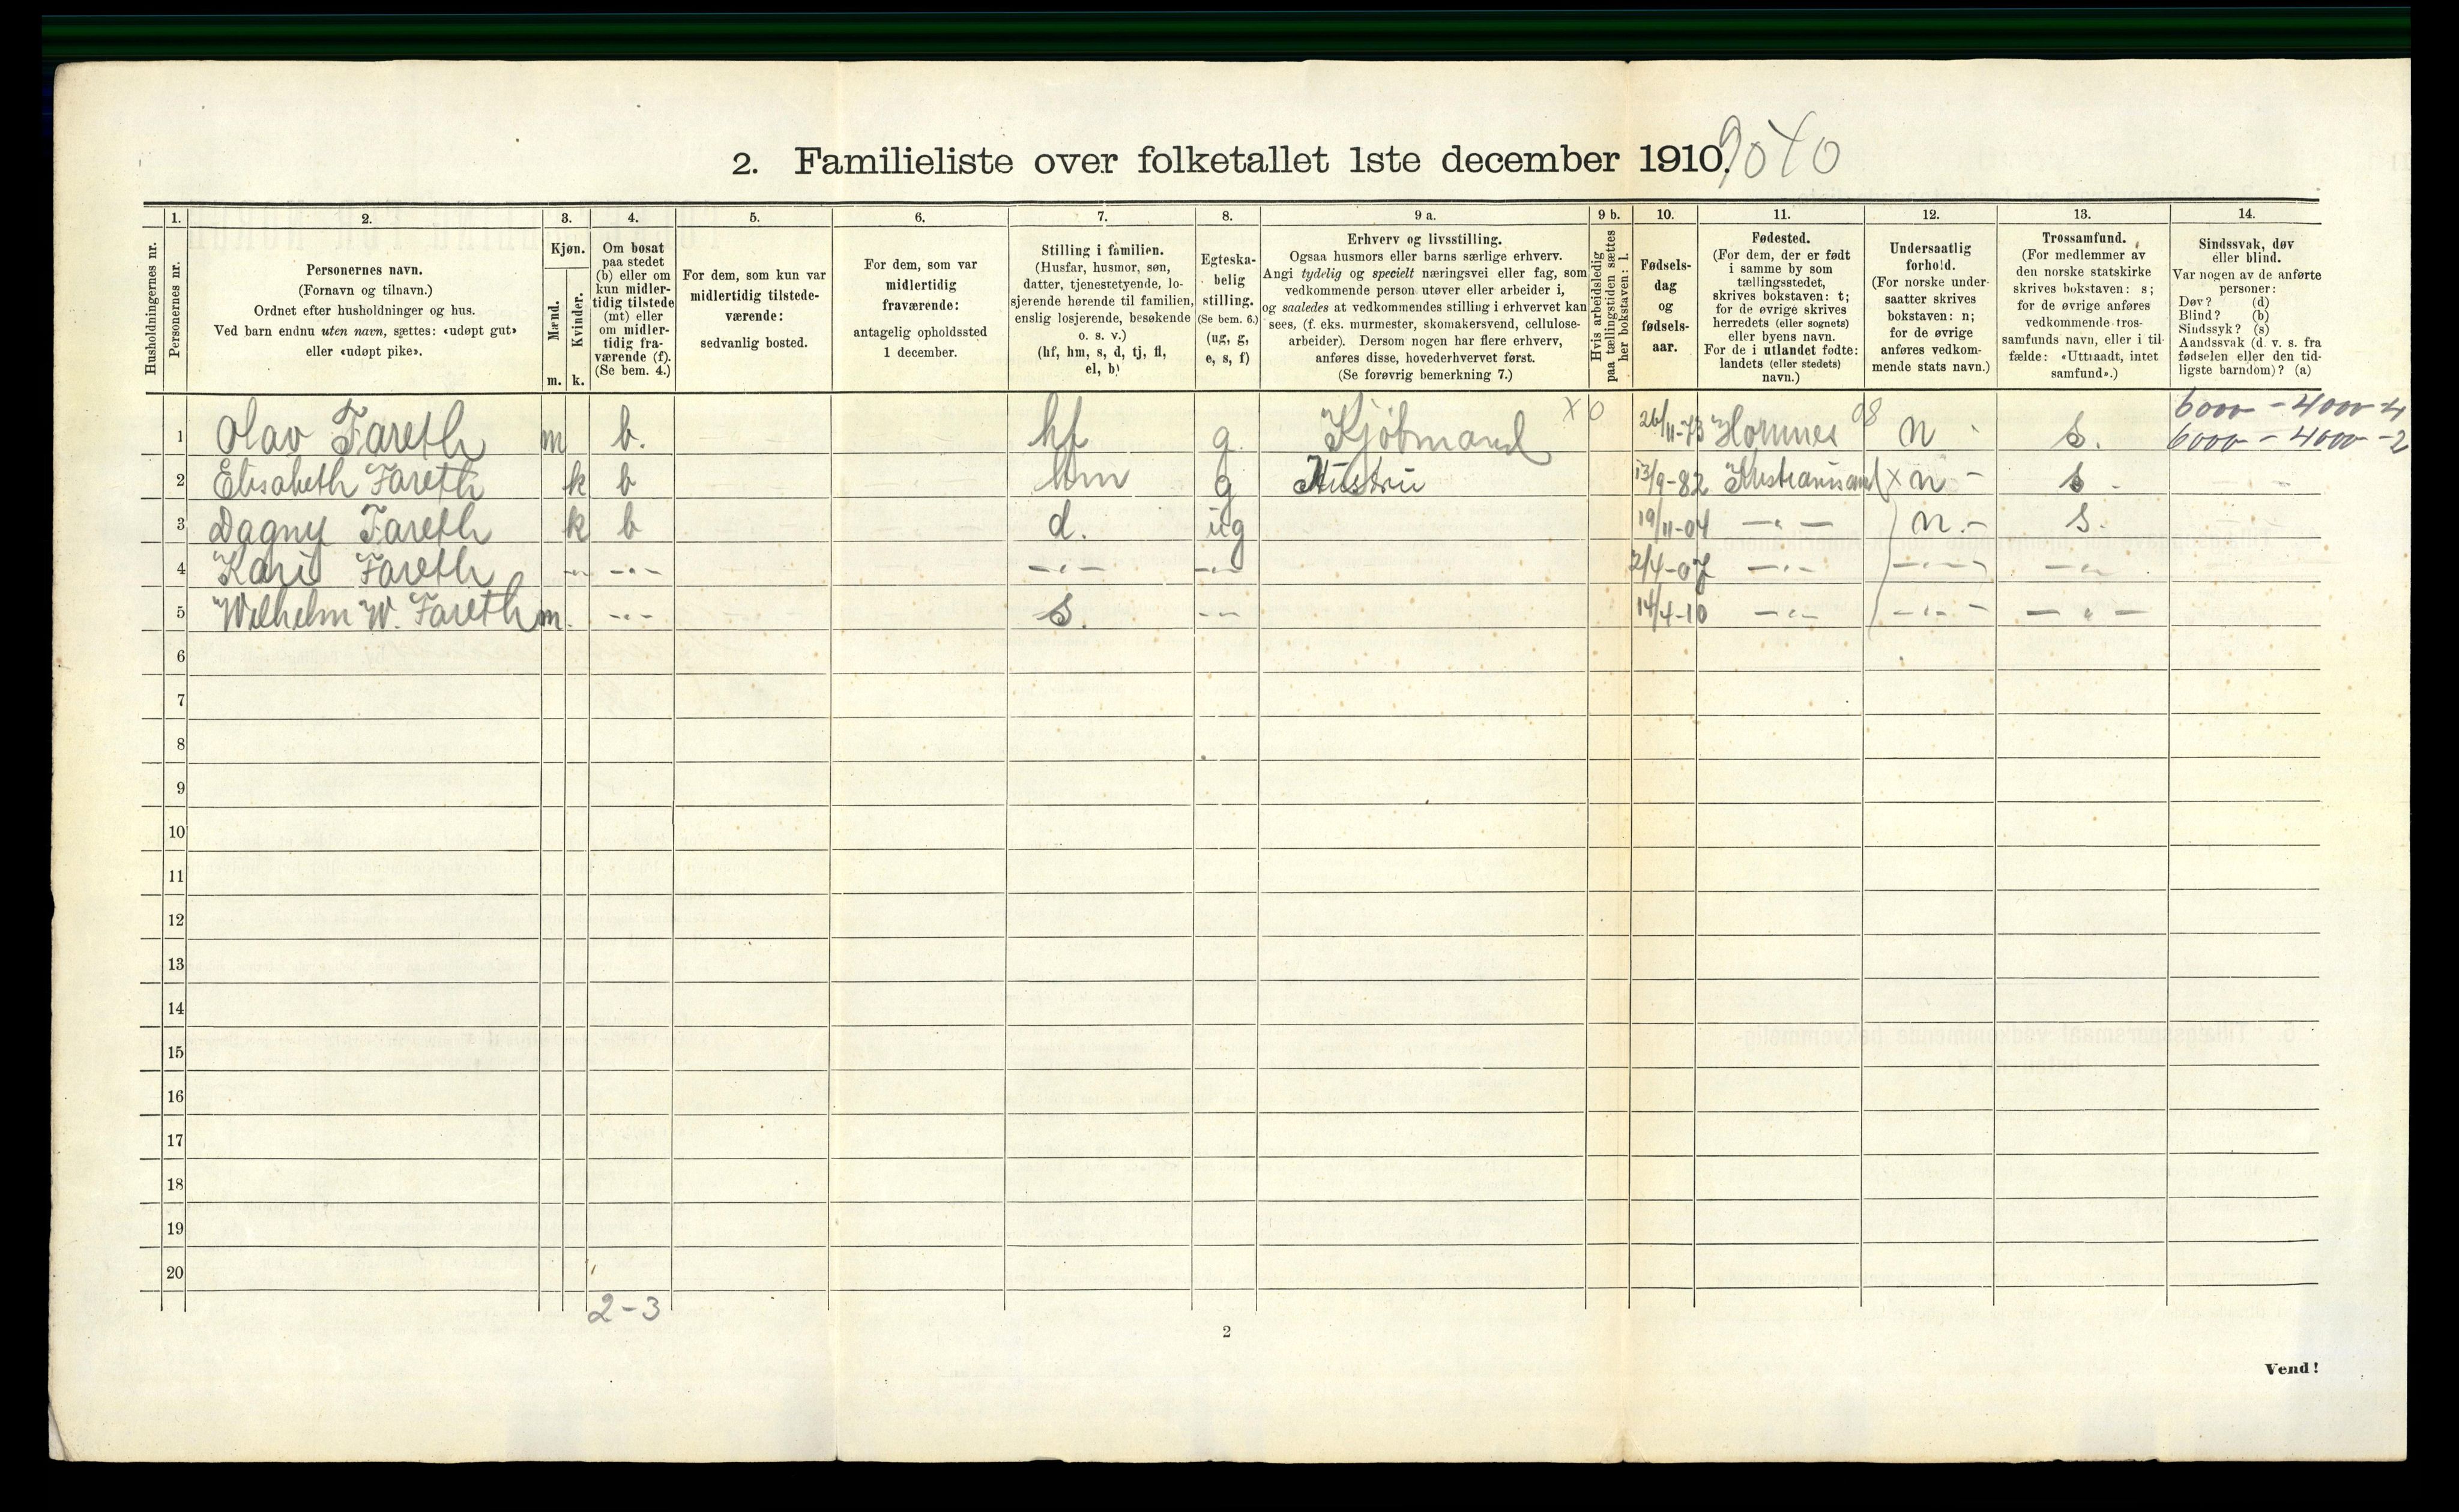 2. Familieliste over folketallet 1ste december 1910. 9040
Husholdningernes nr.
1. Personernes nr.
2. Personernes navn. (Fornavn og tilnavn.) Ordnet efter husholdninger og hus. Ved barn endnu uten navn, sættes: «udøpt gut» eller «udøpt pike».
3. Kjøn. Mænd. m. Kvinder. k.
4. Om bosat paa stedet (b) eller om kun midlertidig tilstede (mt) eller om midlertidig fraværende (f). (Se bem. 4.)
5. For dem, som kun var midlertidig tilstedeværende: sedvanlig bosted.
6. For dem, som var midlertidig fraværende: antagelig opholdssted 1 december.
7. Stilling i familien. (Husfar, husmor, søn, datter, tjenestetyende, losjerende hørende til familien, enslig losjerende, besøkende o. s. v.) (hf, hm, s, d, tj, fl, el, b)
8. Egteskabelig stilling. (Se bem. 6.) (ug, g, e, s, f)
9 a. Erhverv og livsstilling. Ogsaa husmors eller barns særlige erhverv. Angi tydelig og specielt næringsvei eller fag, som vedkommende person utøver eller arbeider i, og saaledes at vedkommendes stilling i erhvervet kan sees, (f. eks. murmester, skomakersvend, cellulosearbeider). Dersom nogen har flere erhverv, anføres disse, hovederhvervet først. (Se forøvrig bemerkning 7.)
9 b. Hvis arbeidsledig paa tællingstiden sættes her bokstaven: l.
10. Fødselsdag og fødselsaar.
11. Fødested. (For dem, der er født i samme by som tællingsstedet, skrives bokstaven: t; for de øvrige skrives herredets (eller sognets) eller byens navn. For de i utlandet fødte: landets (eller stedets) navn.)
12. Undersaatlig forhold. (For norske undersaatter skrives bokstaven: n; for de øvrige anføres vedkommende stats navn.)
13. Trossamfund. (For medlemmer av den norske statskirke skrives bokstaven: s; for de øvrige anføres vedkommende trossamfunds navn, eller i tilfælde: «Uttraadt, intet samfund».)
14. Sindssvak, døv eller blind. Var nogen av de anførte personer: Døv? (d) Blind? (b) Sindssyk? (s) Aandssvak (d. v. s. fra fødselen eller den tidligste barndom)? (a)
6000 - 4000 - 4
1 Olav Fareth m b. hf g. Kjøbmand X 0 26/11-73 Hornnes 08 n s. 6000 - 4000 - 2
2 Elisabeth Fareth k b hm g Hustru 13/9-82 Khristianssand X n - s -
3 Dagny Fareth k b d. ug 19/11-04 —"— n. - s.
4 Kari Fareth -"- -"- -"- -"- 2/4-07 -"- -"- -"-
5 Wilhelm W. Fareth m. -"- s. -"- 14/4-10 -"- -"- -"-
6
7
8
9
10
11
12
13
14
15
16
17
18
19
20
2-3
2
Vend!